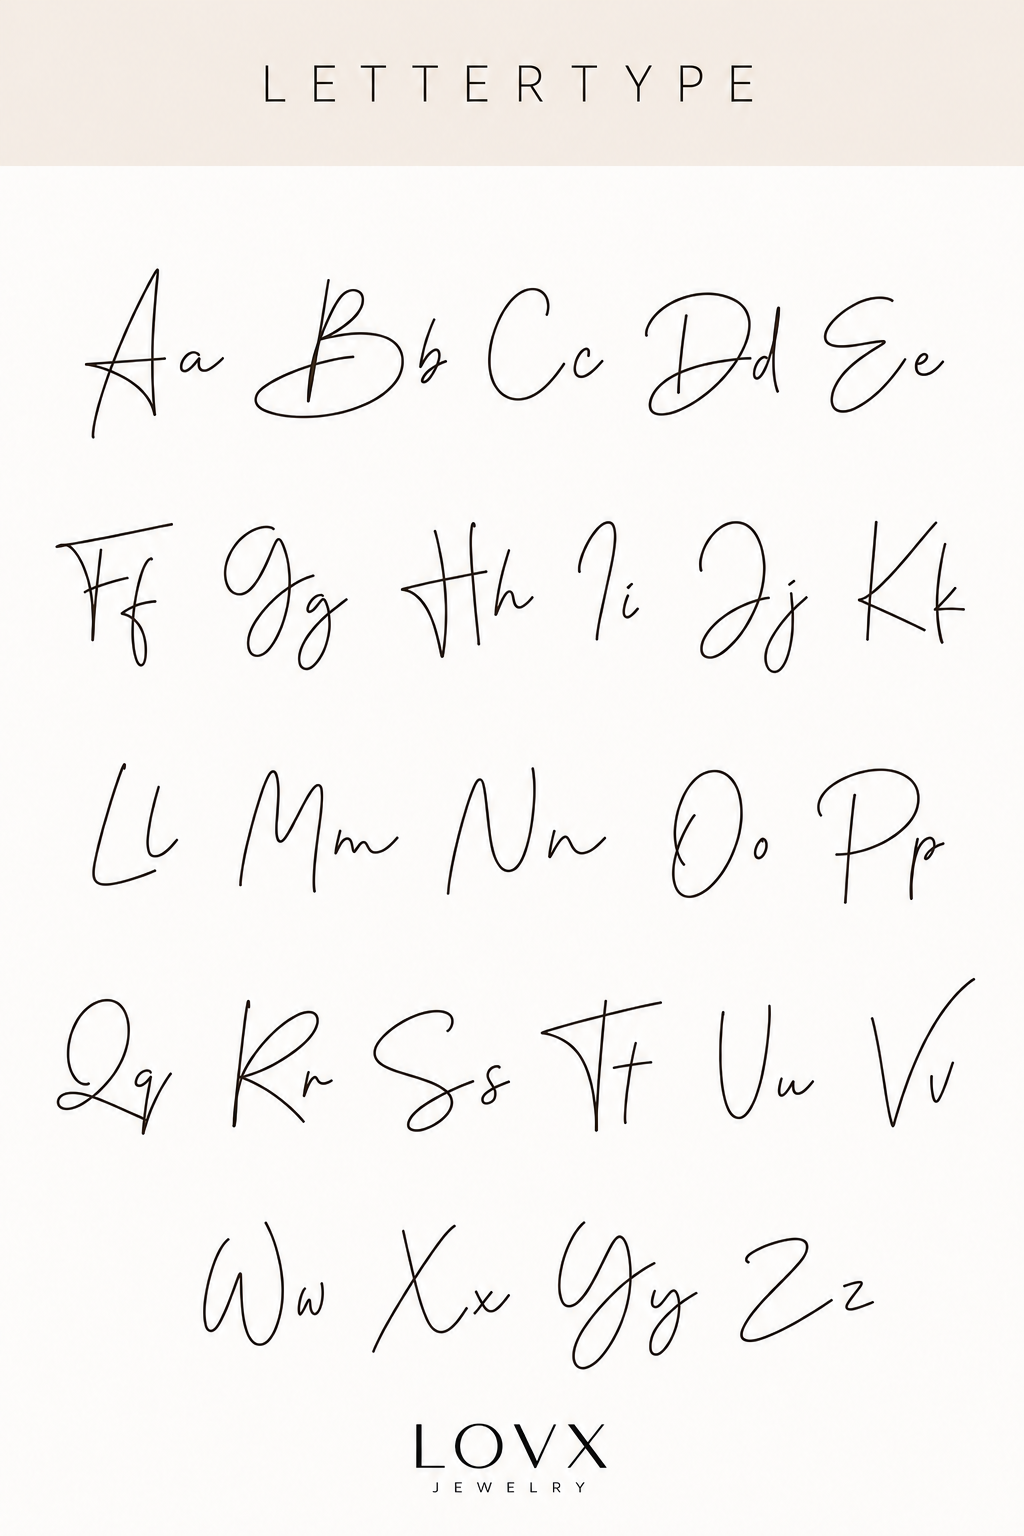 LETTERTYPE
Aa Bb Cc Dd Ee
Ff Gg Hh Ii Jj Kk
Ll Mm Nn Oo Pp
Qq Rr Ss Tt Uu Vv
Ww Xx Yy Zz
LOVX
JEWELRY